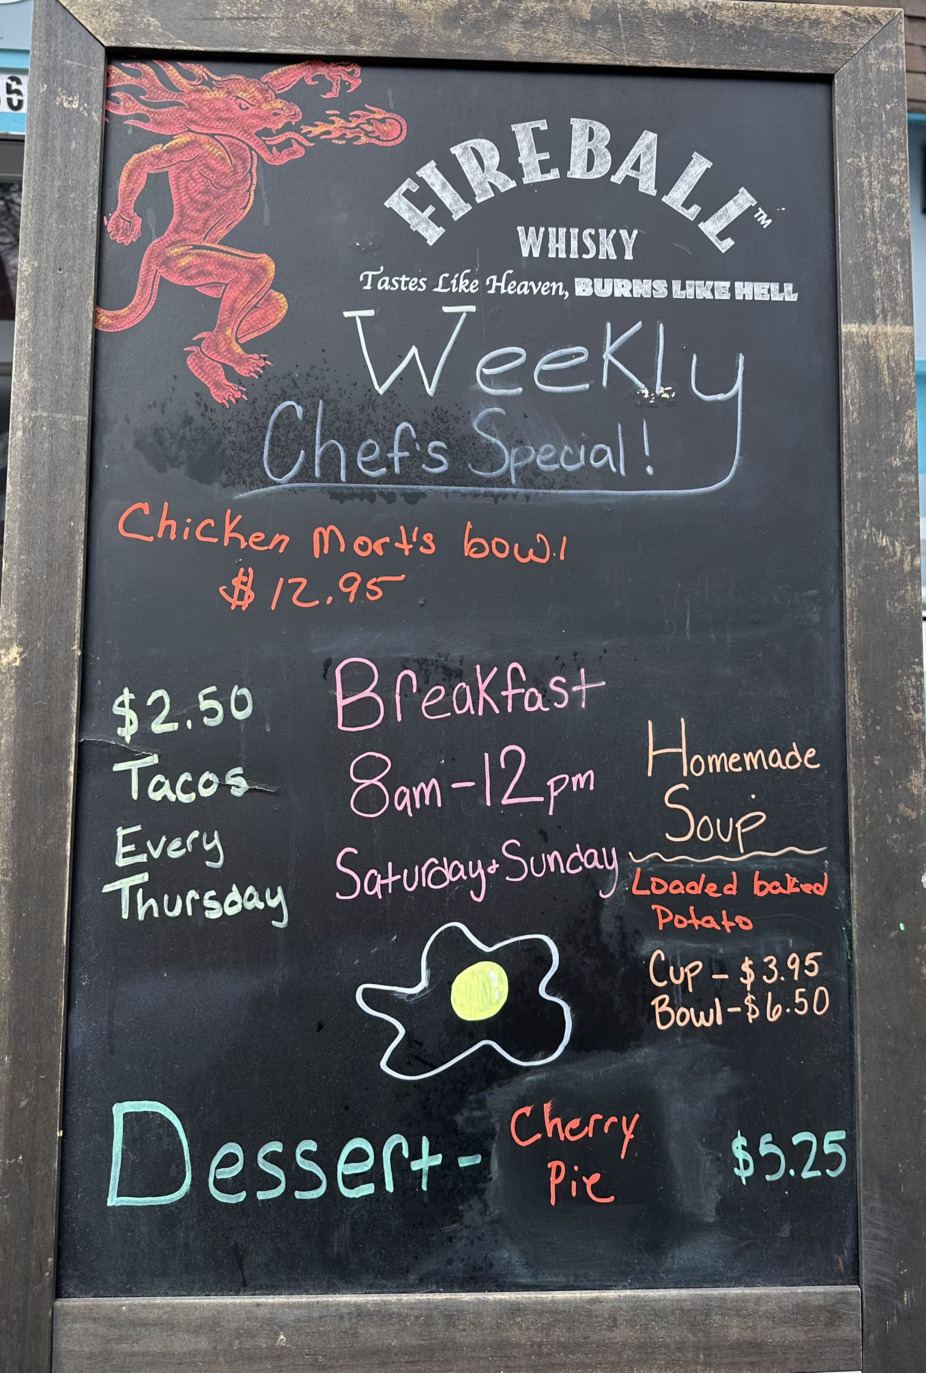 FIREBALL™
WHISKY
Tastes Like Heaven, BURNS LIKE HELL
Weekly
Chef's Special!
Chicken Mort's bowl
$12.95
$2.50
Tacos
Every
Thursday
Breakfast
8am-12pm
Saturday & Sunday
Homemade
Soup
Loaded baked
Potato
Cup - $3.95
Bowl - $6.50
Dessert - Cherry
Pie
$5.25